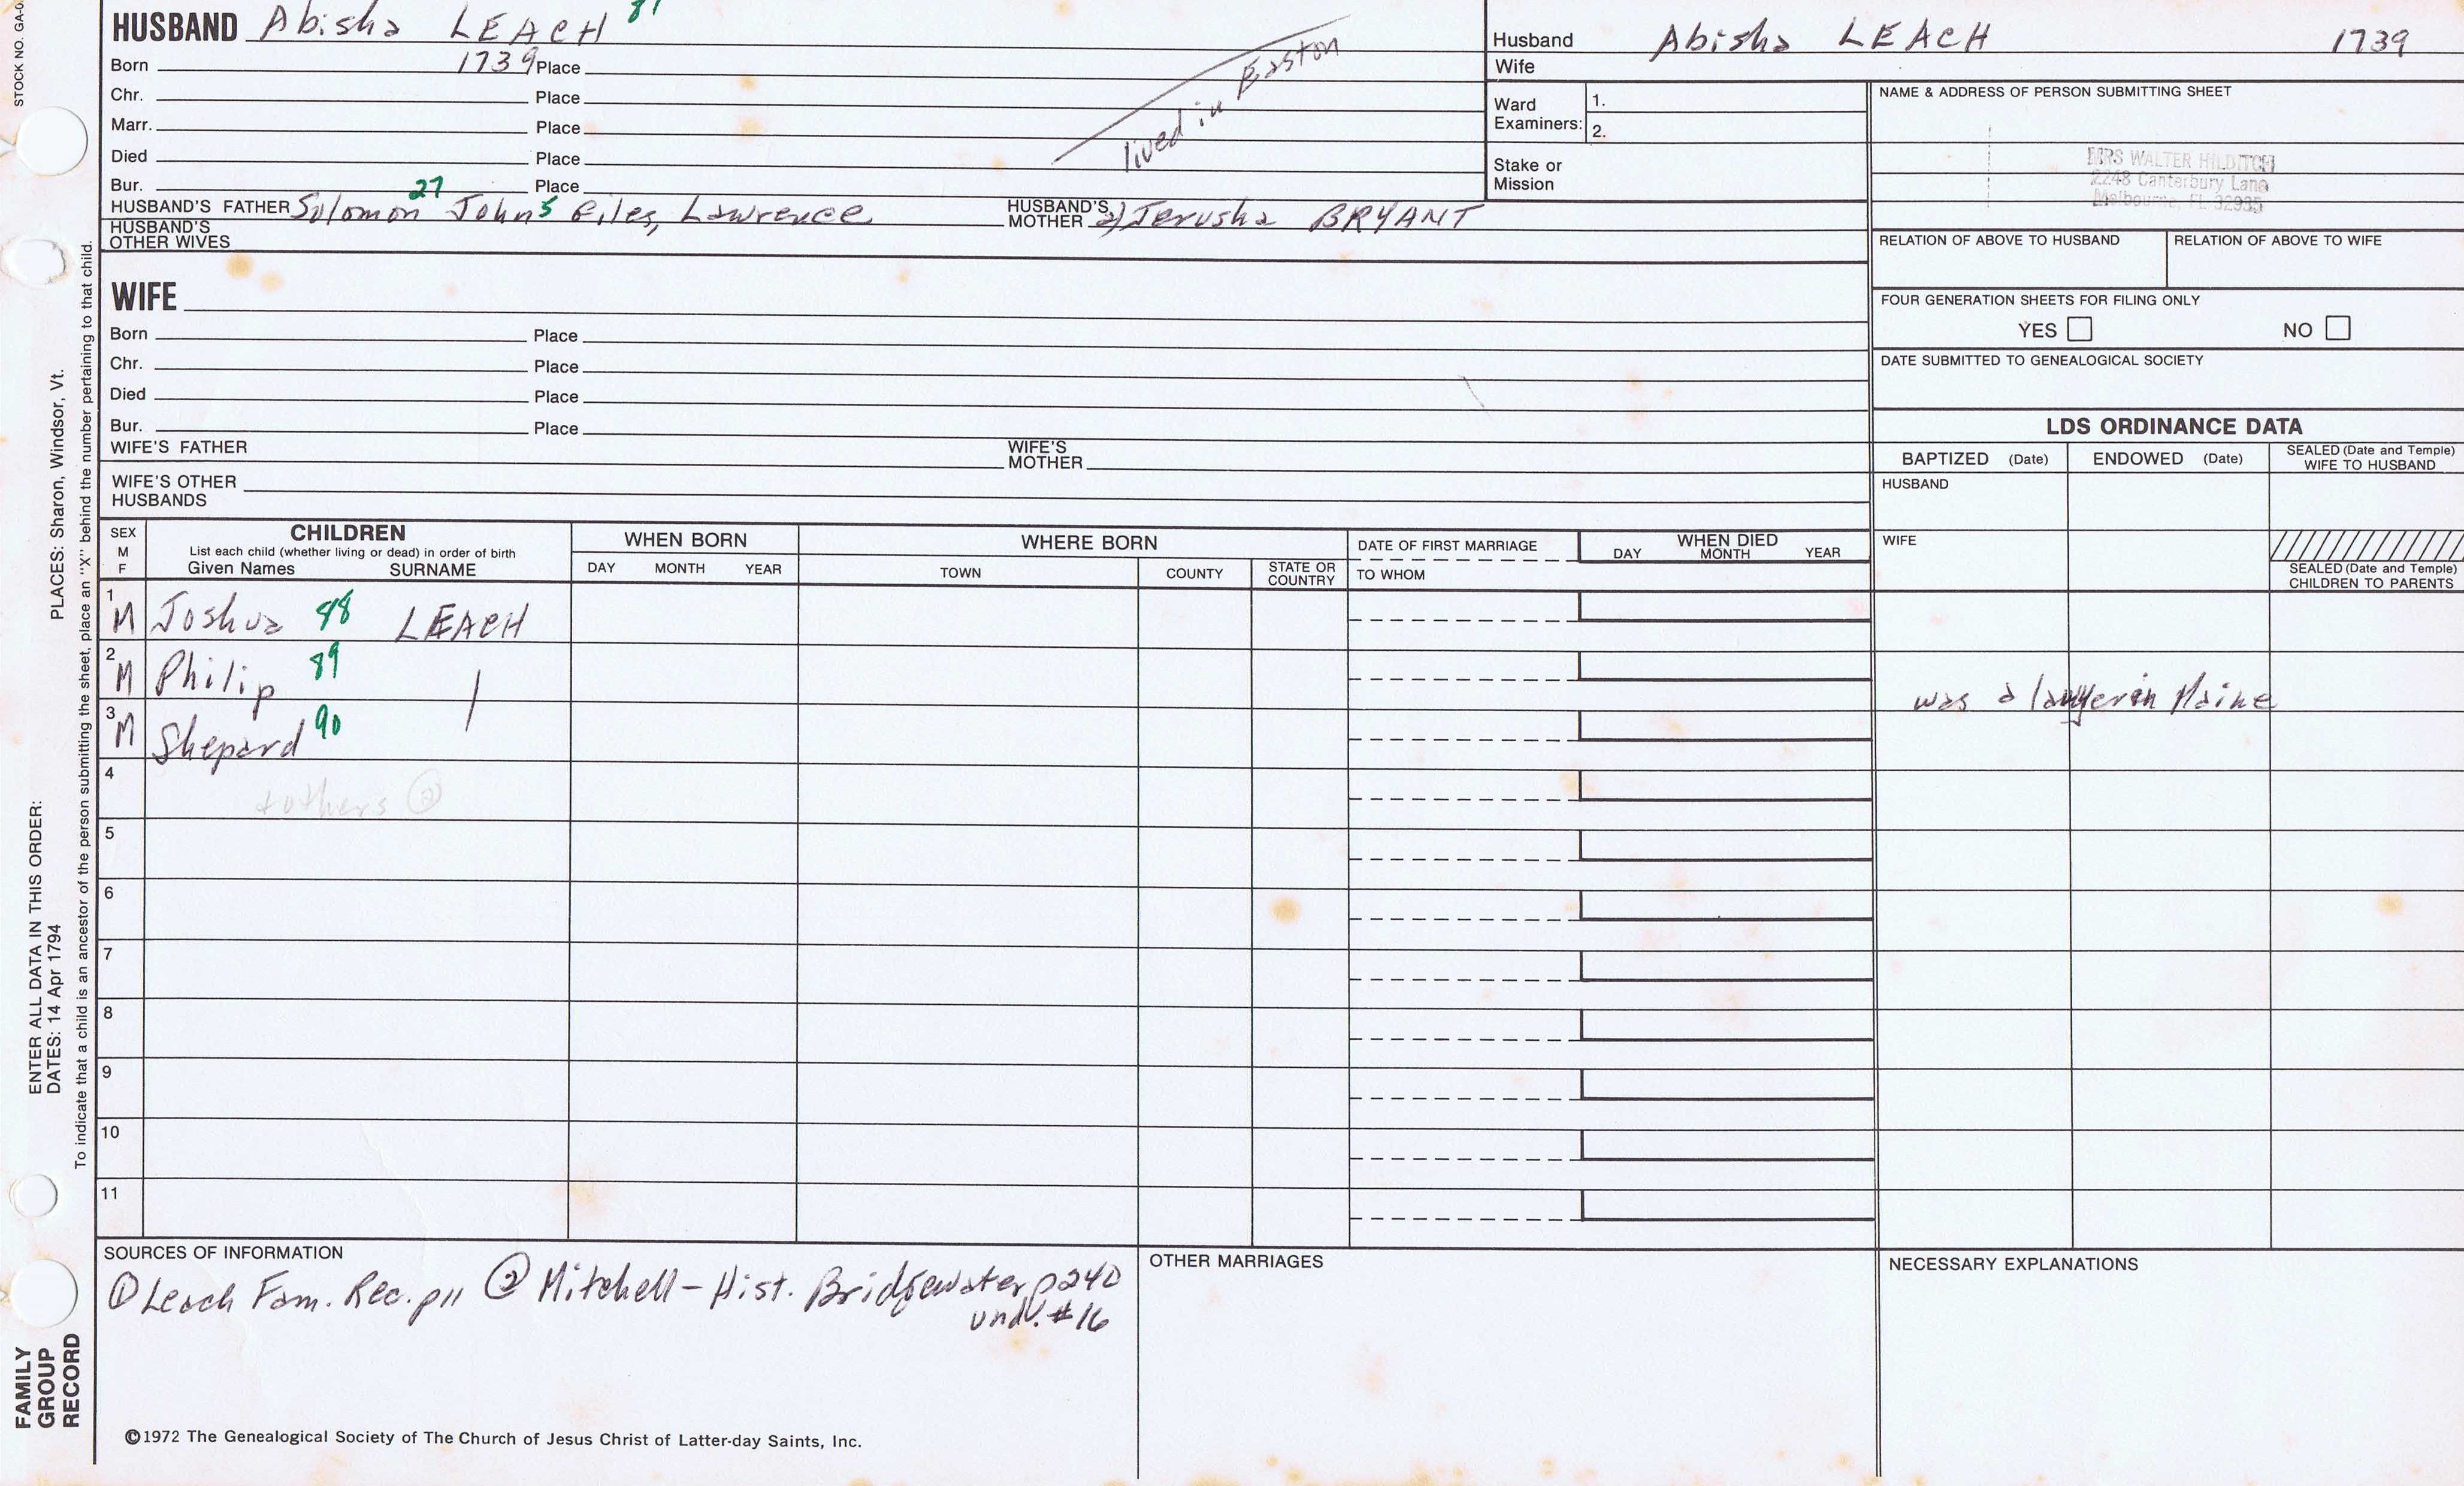 STOCK NO. GA-0
HUSBAND Abisha LEACH
Husband Abisha LEACH 1739
Wife
Born 1739 Place
lived in Easton
Chr. Place
Marr. Place
Died Place
Bur. Place
Ward Examiners: 1.
2.
Stake or Mission
NAME & ADDRESS OF PERSON SUBMITTING SHEET
MRS WALTER HILDITCH
2248 Canterbury Lane
Melbourne, FL 32935
HUSBAND'S FATHER Solomon 27 John 5 Giles, Lawrence HUSBAND'S MOTHER 2) Jerusha BRYANT
HUSBAND'S OTHER WIVES
RELATION OF ABOVE TO HUSBAND RELATION OF ABOVE TO WIFE
WIFE
Born Place
Chr. Place
Died Place
Bur. Place
WIFE'S FATHER WIFE'S MOTHER
WIFE'S OTHER HUSBANDS
FOUR GENERATION SHEETS FOR FILING ONLY
YES NO
DATE SUBMITTED TO GENEALOGICAL SOCIETY
LDS ORDINANCE DATA
BAPTIZED (Date) ENDOWED (Date) SEALED (Date and Temple) WIFE TO HUSBAND
HUSBAND
WIFE
SEALED (Date and Temple) CHILDREN TO PARENTS
SEX M F
CHILDREN
List each child (whether living or dead) in order of birth
Given Names SURNAME
WHEN BORN
DAY MONTH YEAR
WHERE BORN
TOWN COUNTY STATE OR COUNTRY
DATE OF FIRST MARRIAGE
TO WHOM
WHEN DIED
DAY MONTH YEAR
1 M Joshua 88 LEACH
2 M Philip 89
was a lawyer in Maine
3 M Shepard 90
4
+ others ②
5
6
7
8
9
10
11
SOURCES OF INFORMATION
① Leach Fam. Rec. p11 ② Mitchell - Hist. Bridgewater p240
und. #16
OTHER MARRIAGES
NECESSARY EXPLANATIONS
©1972 The Genealogical Society of The Church of Jesus Christ of Latter-day Saints, Inc.
ENTER ALL DATA IN THIS ORDER:
DATES: 14 Apr 1794 PLACES: Sharon, Windsor, Vt.
To indicate that a child is an ancestor of the person submitting the sheet, place an "X" behind the number pertaining to that child.
FAMILY
GROUP
RECORD